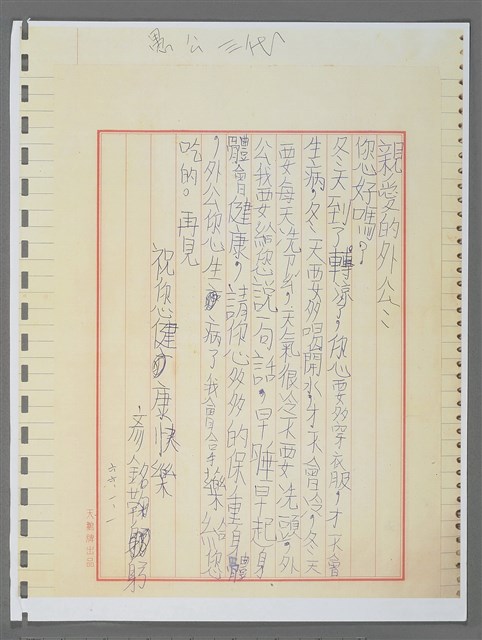 愚公三代
親愛的外公：
您好嗎？
冬天到了轉涼了，您要多穿衣服，才不會
生病，冬天要多喝開水，才不會冷，冬天
要每天洗，天氣很冷不要洗頭。外
公我要給您說一句話，早睡早起身
體會健康，請您多多的保重身體
，外公您生病了我會拿藥給您
吃的。再見
祝您健康快樂
彥銘鞠躬
六六、一、一
天鵝牌出品